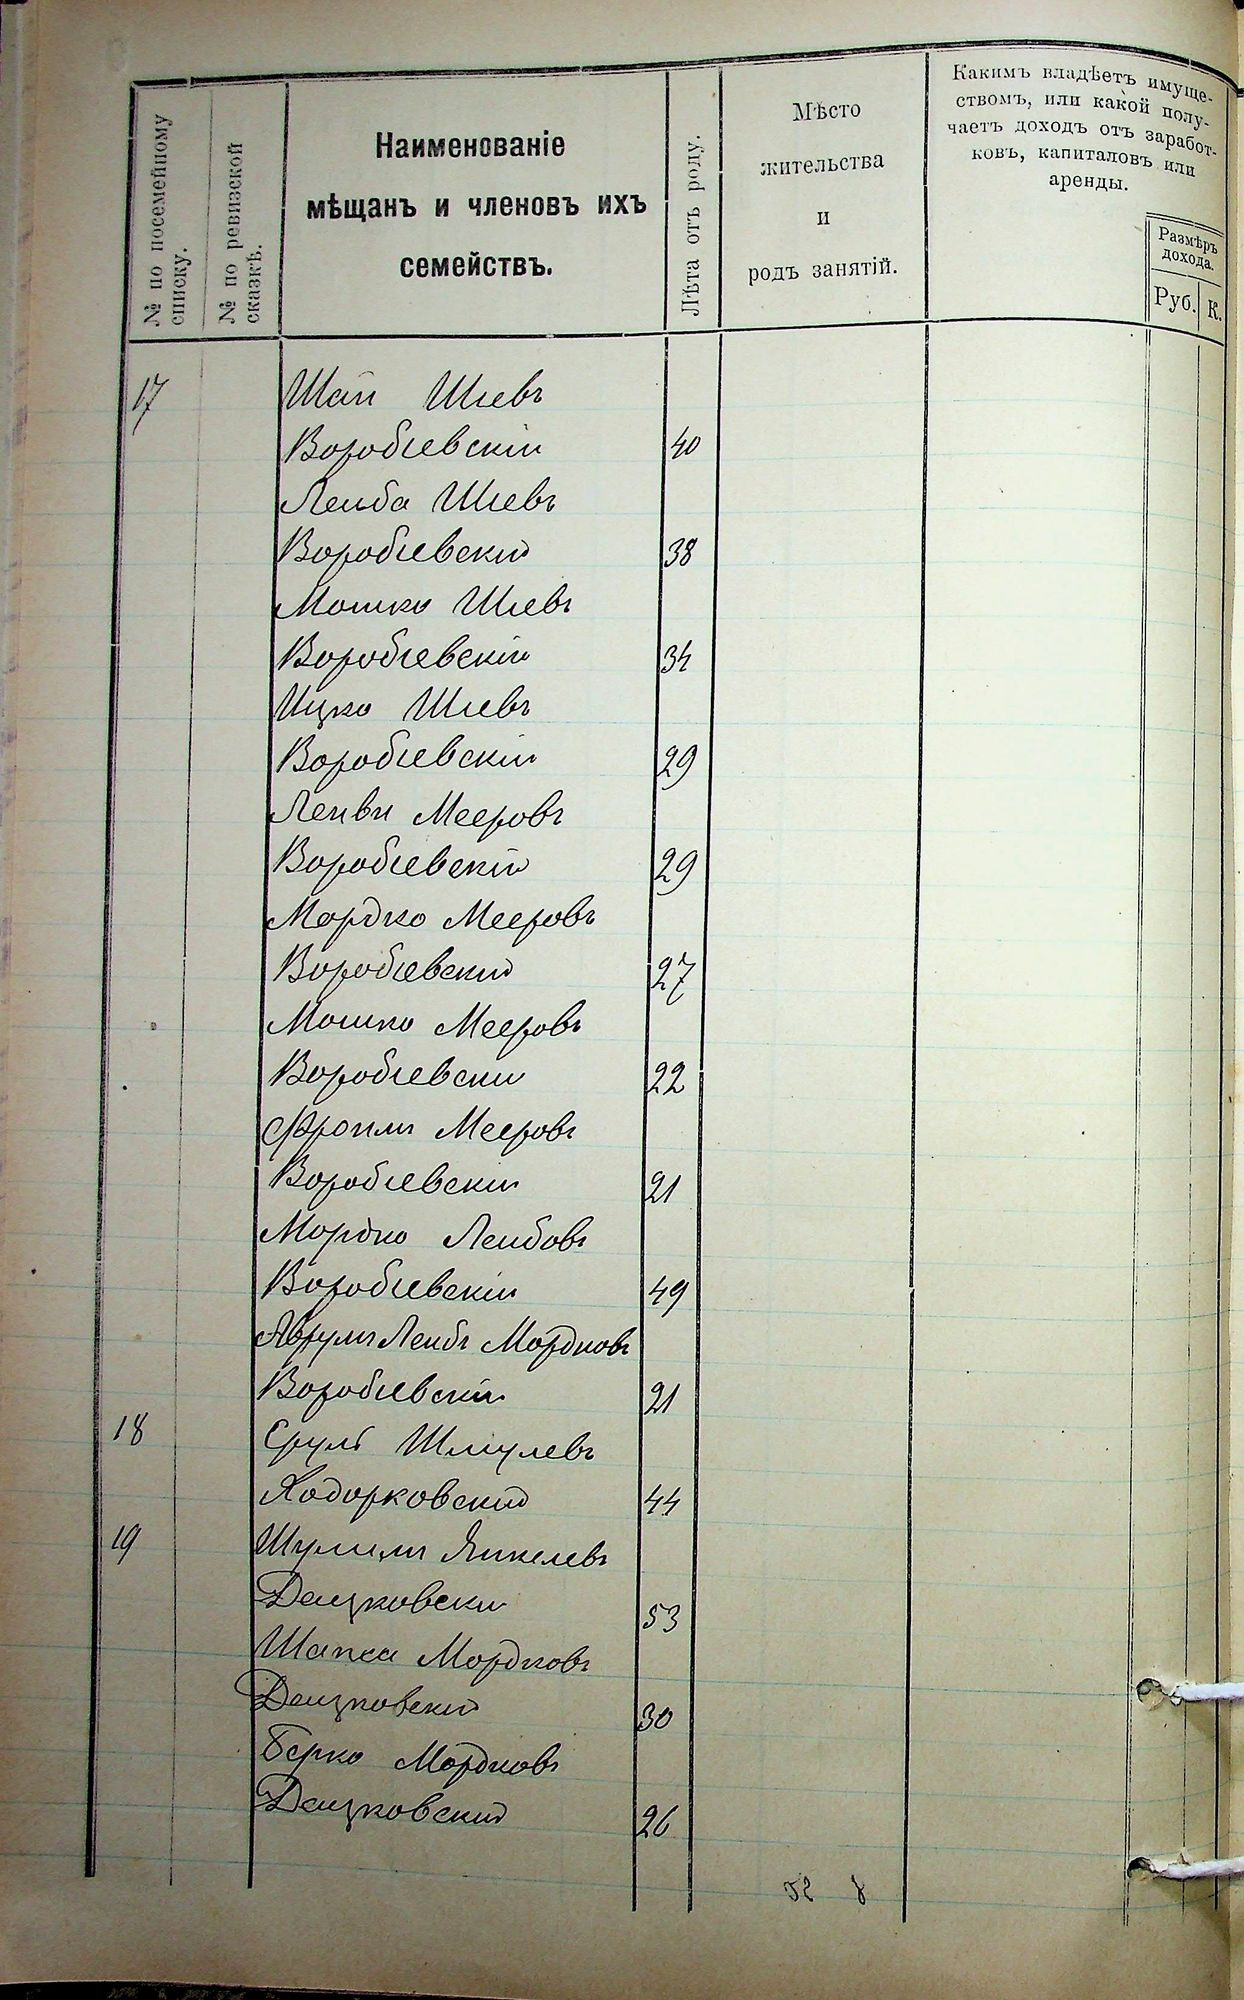 № по посемейному
списку.
№ по ревизской
сказкѣ.
Наименованіе
мѣщанъ и членовъ ихъ
семействъ.
Лѣта отъ роду.
Мѣсто
жительства
и
родъ занятій.
Какимъ владѣетъ имуще-
ствомъ, или какой полу-
чаетъ доходъ отъ заработ-
ковъ, капиталовъ или
аренды.
Размѣръ
дохода.
Руб. К.
17 Шая Шаевъ
Воробіевскій 40
Лейба Шаевъ
Воробіевскій 38
Мошко Шаевъ
Воробіевскій 34
Ицко Шаевъ
Воробіевскій 29
Мееровъ
Воробіевскій 29
Мордко Мееровъ
Воробіевскій 27
Мошко Мееровъ
Воробіевскій 22
Фроимъ Мееровъ
Воробіевскій 21
Мордко Лейбовъ
Воробіевскій 49
Аврумъ Лейбъ Мордковъ
Воробіевскій 21
18 Сруль Шмулевъ
Ходорковскій 44
19 Шулимъ Янкелевъ
Дацковскій 53
Шапса Мордковъ
Дацковскій 30
Берко Мордковъ
Дацковскій 26